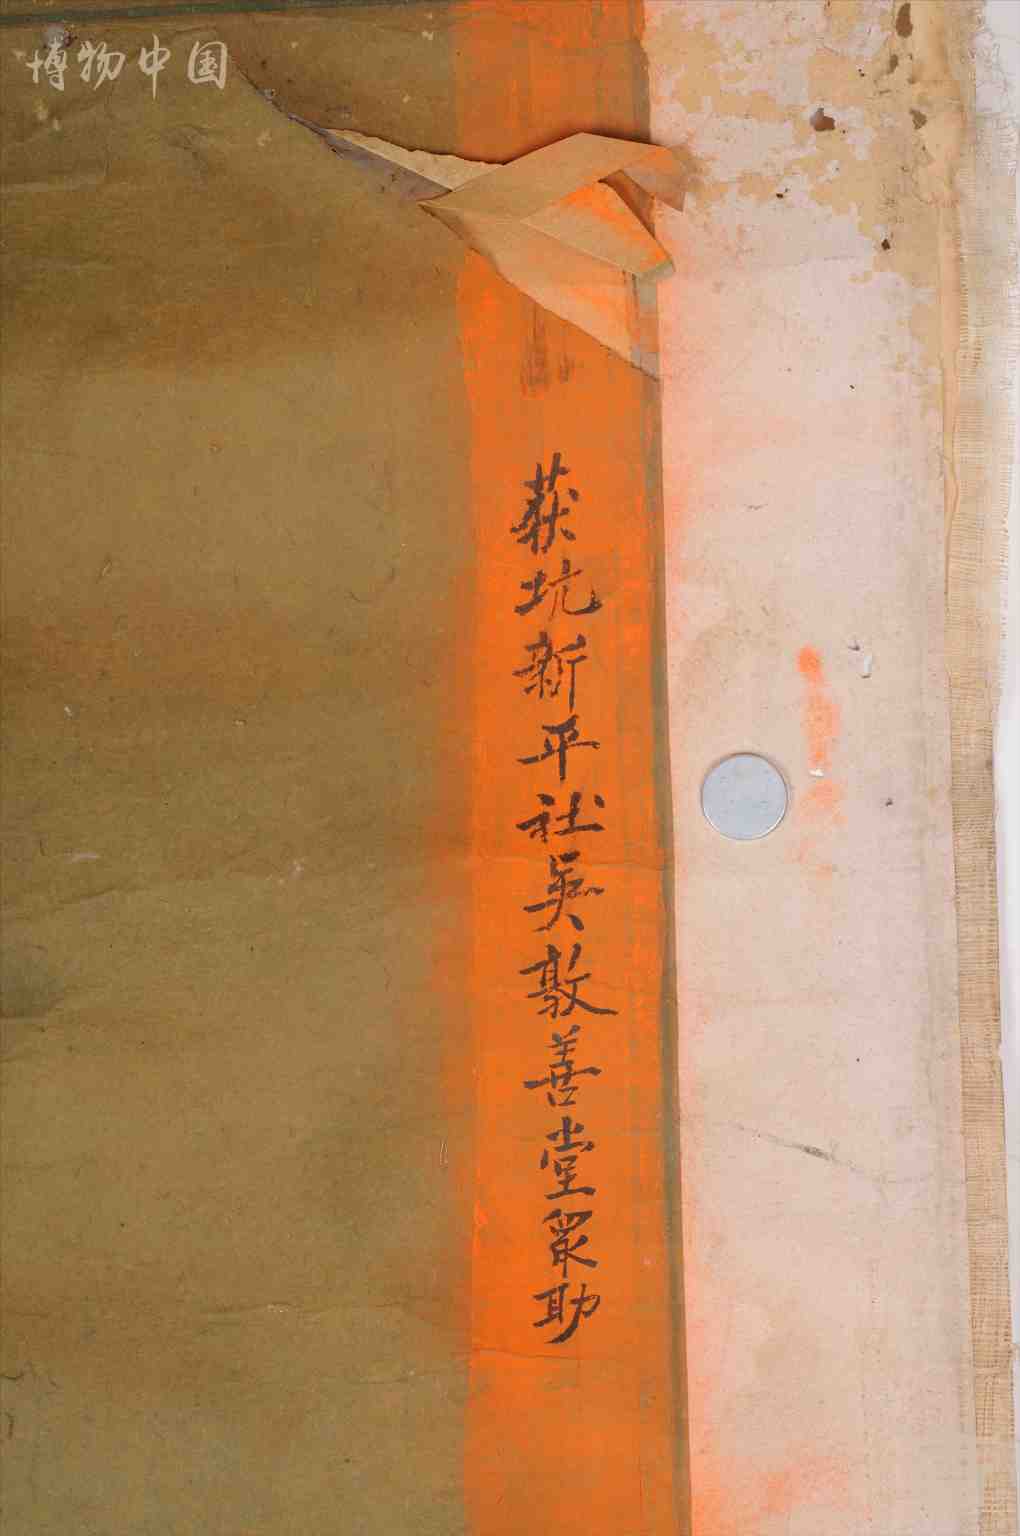 博物中国
荻坑新平社吴敦善堂眾助